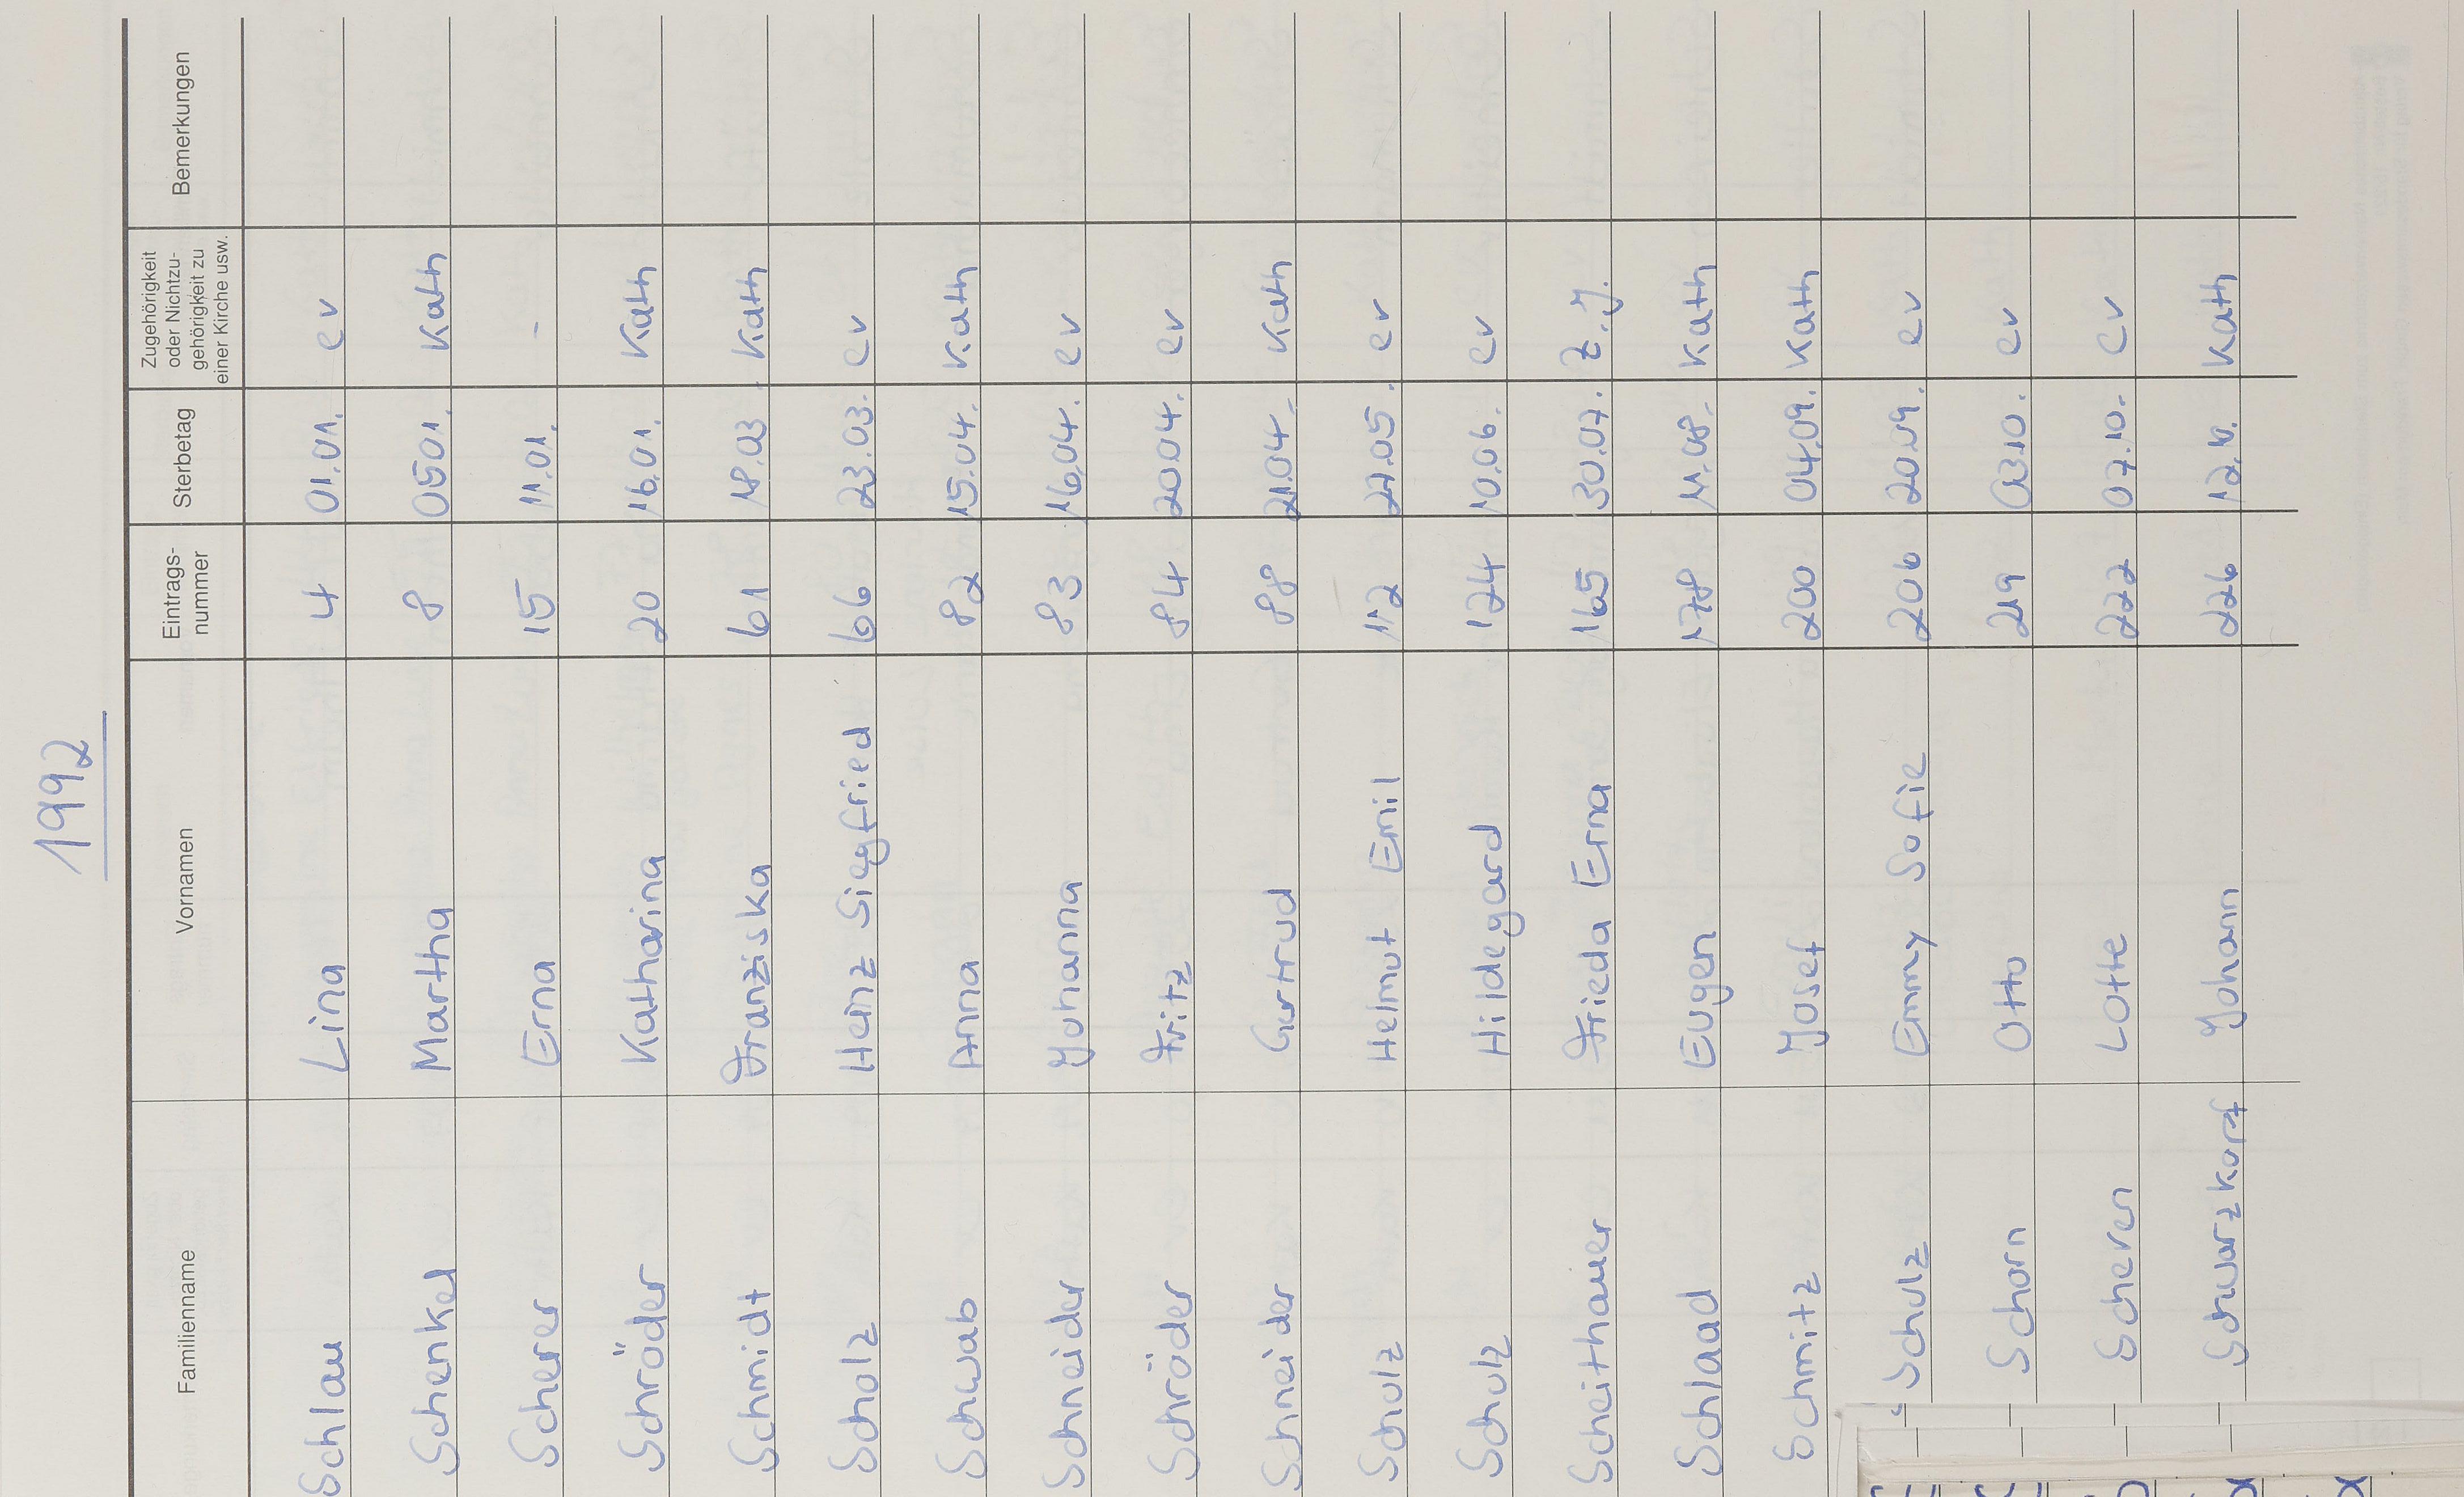 1992
Familienname Vornamen Eintrags-nummer Sterbetag Zugehörigkeit oder Nichtzu-gehörigkeit zu einer Kirche usw. Bemerkungen
Schlau Lina 4 01.01. ev
Schenkel Martha 8 05.01. Kath
Scherer Erna 15 11.01. -
Schröder Katharina 20 16.01. Kath
Schmidt Franziska 61 18.03. Kath
Scholz Heinz Siegfried 66 23.03. ev
Schwab Anna 82 15.04. Kath
Schneider Johanna 83 16.04. ev
Schröder Fritz 84 20.04. ev
Schneider Gertrud 88 21.04. Kath
Scholz Helmut Emil 112 27.05. ev
Schulz Hildegard 124 10.06. ev
Scheithauer Frieda Erna 165 30.07. Z.J.
Schlaad Eugen 178 11.08. Kath
Schmitz Josef 200 04.09. Kath
Schulz Emmy Sofie 206 20.09. ev
Schorn Otto 219 03.10. ev
Scheren Lotte 222 07.10. ev
Schwarzkopf Johann 226 12.10. Kath